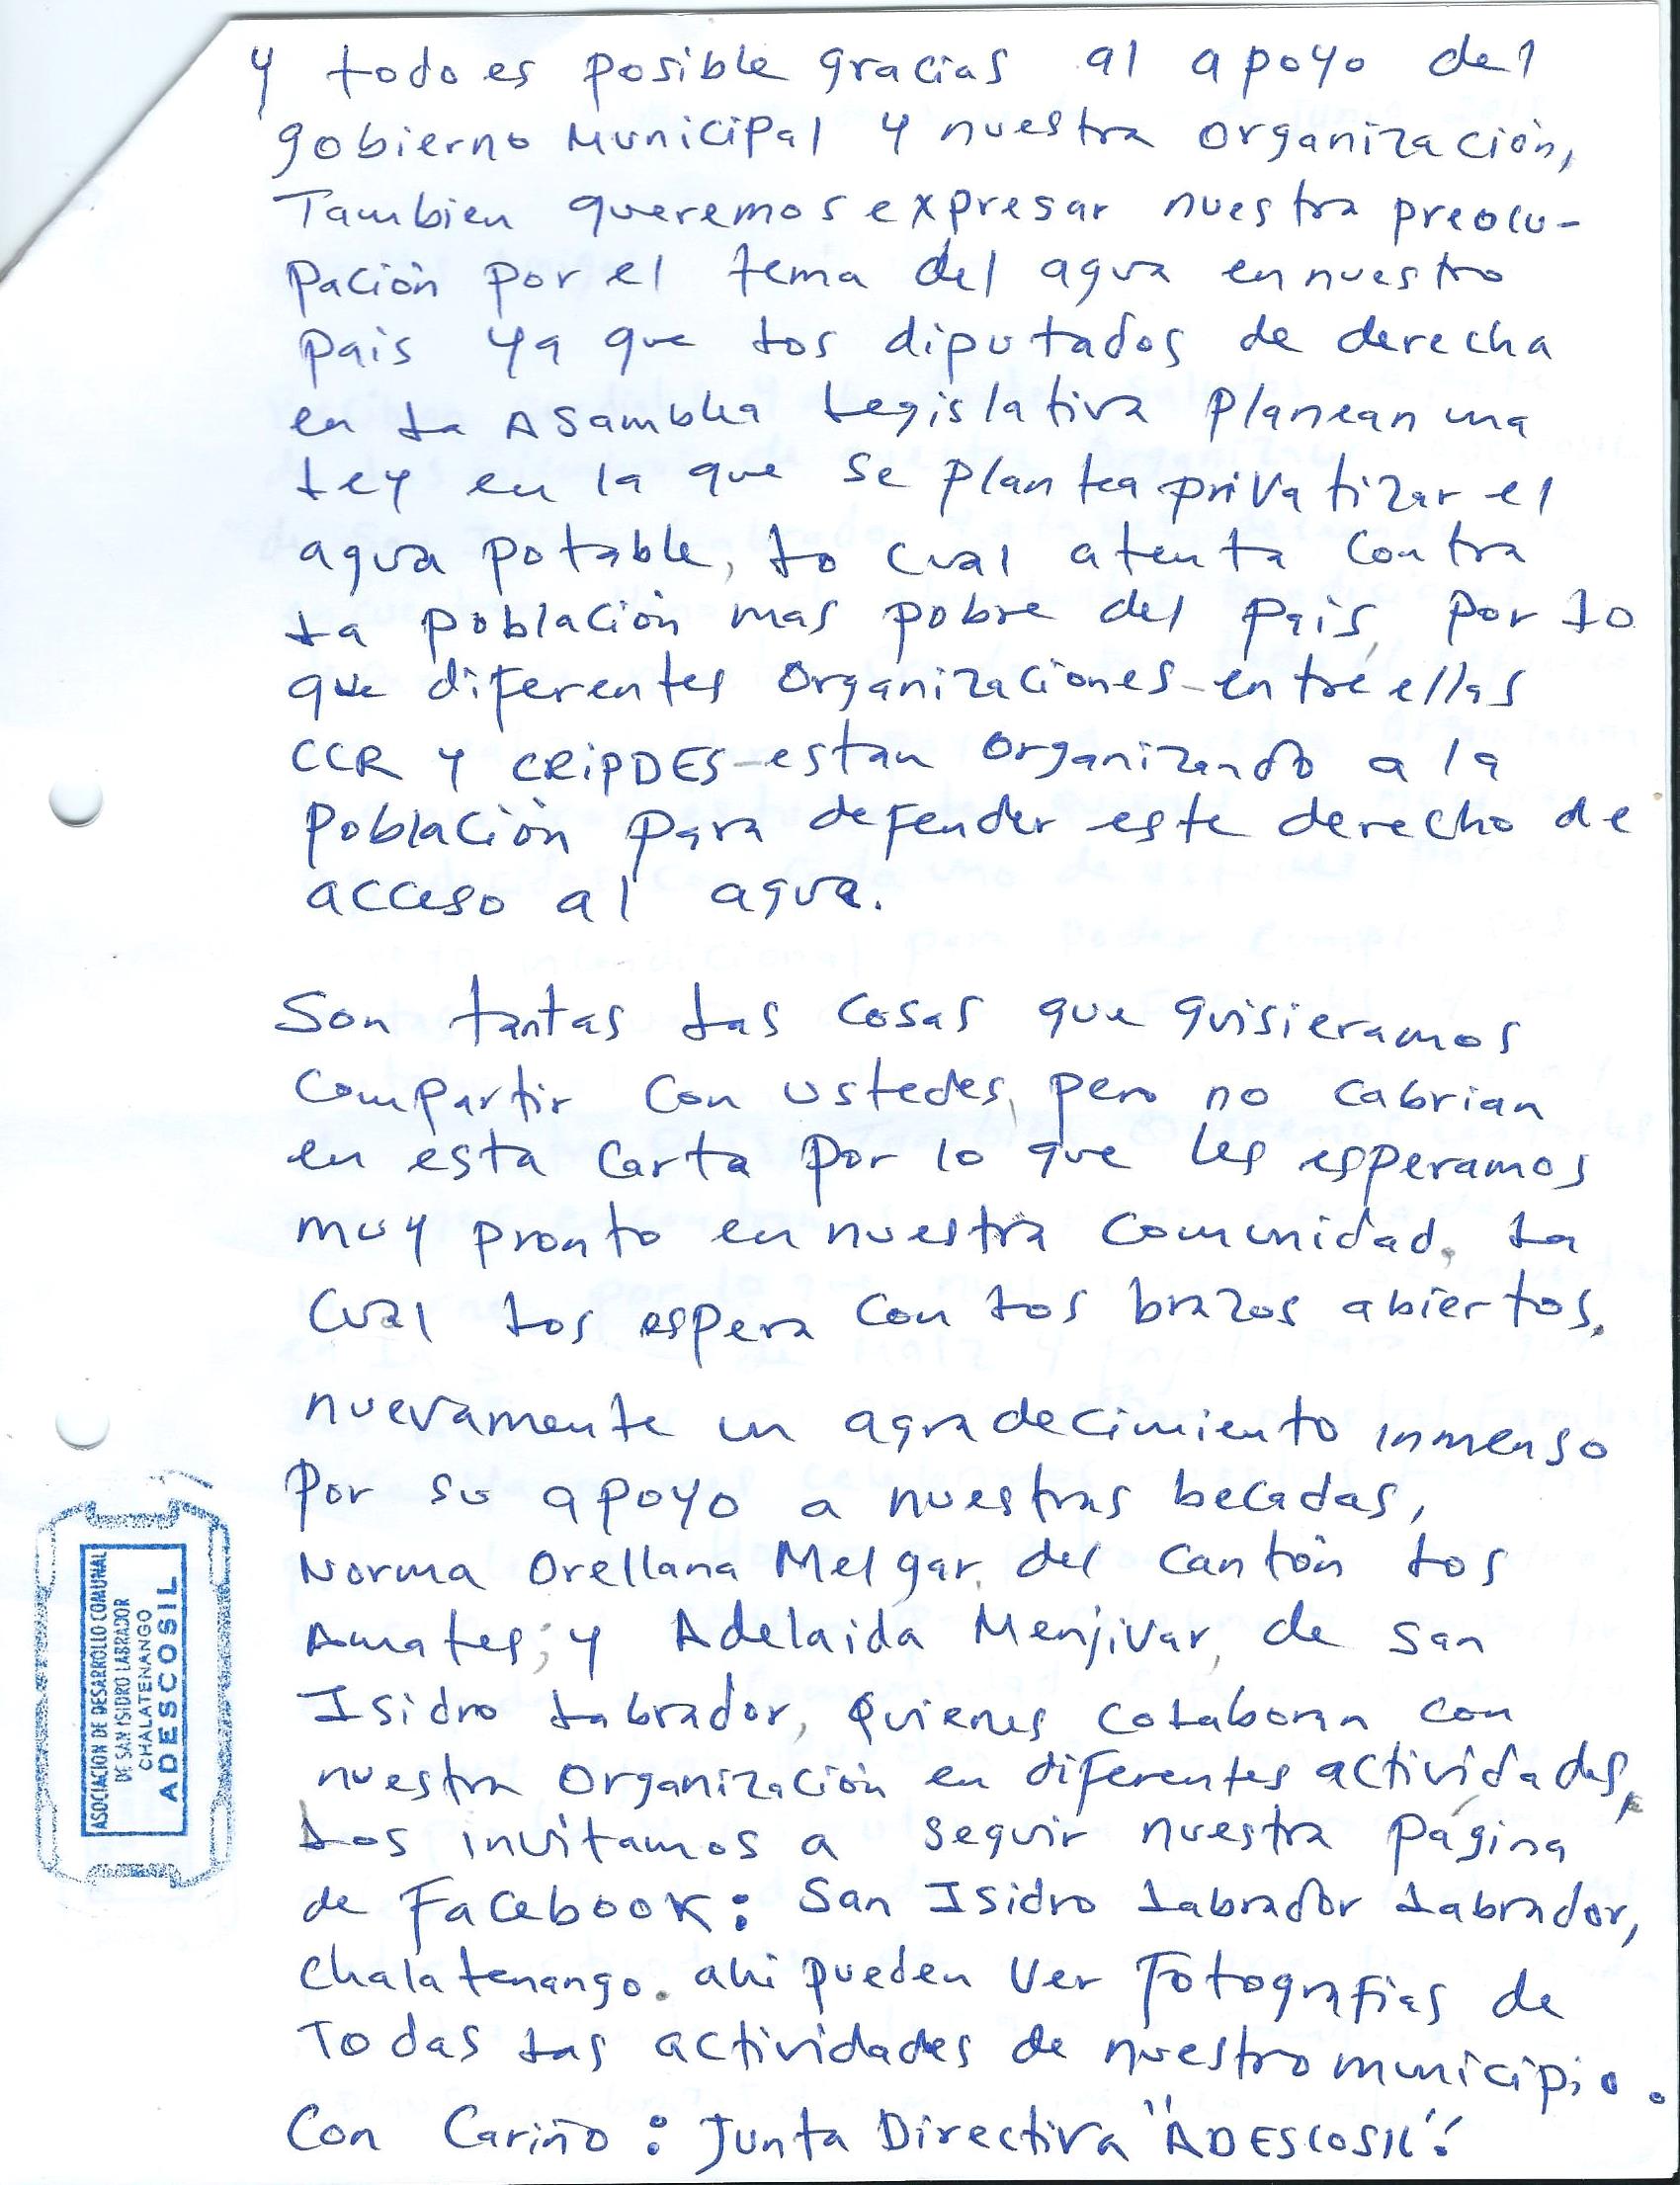 y todo es posible gracias al apoyo del
gobierno Municipal y nuestra organización,
Tambien queremos expresar nuestra preocu-
pación por el tema del agua en nuestro
pais ya que los diputados de derecha
en la Asamblea Legislativa planean una
Ley en la que se plantea privatizar el
agua potable, lo cual atenta contra
la población mas pobre del pais, por lo
que diferentes organizaciones-entre ellas
CCR y CRiPDES-estan organizando a la
población para defender este derecho de
acceso al agua.
Son tantas las cosas que quisieramos
compartir con ustedes, pero no cabrian
en esta carta por lo que les esperamos
muy pronto en nuestra comunidad, La
cual los espera con los brazos abiertos.
nuevamente un agradecimiento inmenso
por su apoyo a nuestras becadas,
Norma Orellana Melgar, del cantón Los
Amates; y Adelaida Menjivar, de San
Isidro Labrador, quienes colaboran con
nuestra organización en diferentes actividades,
Los invitamos a seguir nuestra página
de Facebook: San Isidro Labrador Labrador,
Chalatenango. ahi pueden ver Fotografias de
Todas las actividades de nuestro municipio.
Con Cariño: Junta Directiva "ADESCOSIL".
ASOCIACION DE DESARROLLO COMUNAL
DE SAN ISIDRO LABRADOR
CHALATENANGO
ADESCOSIL